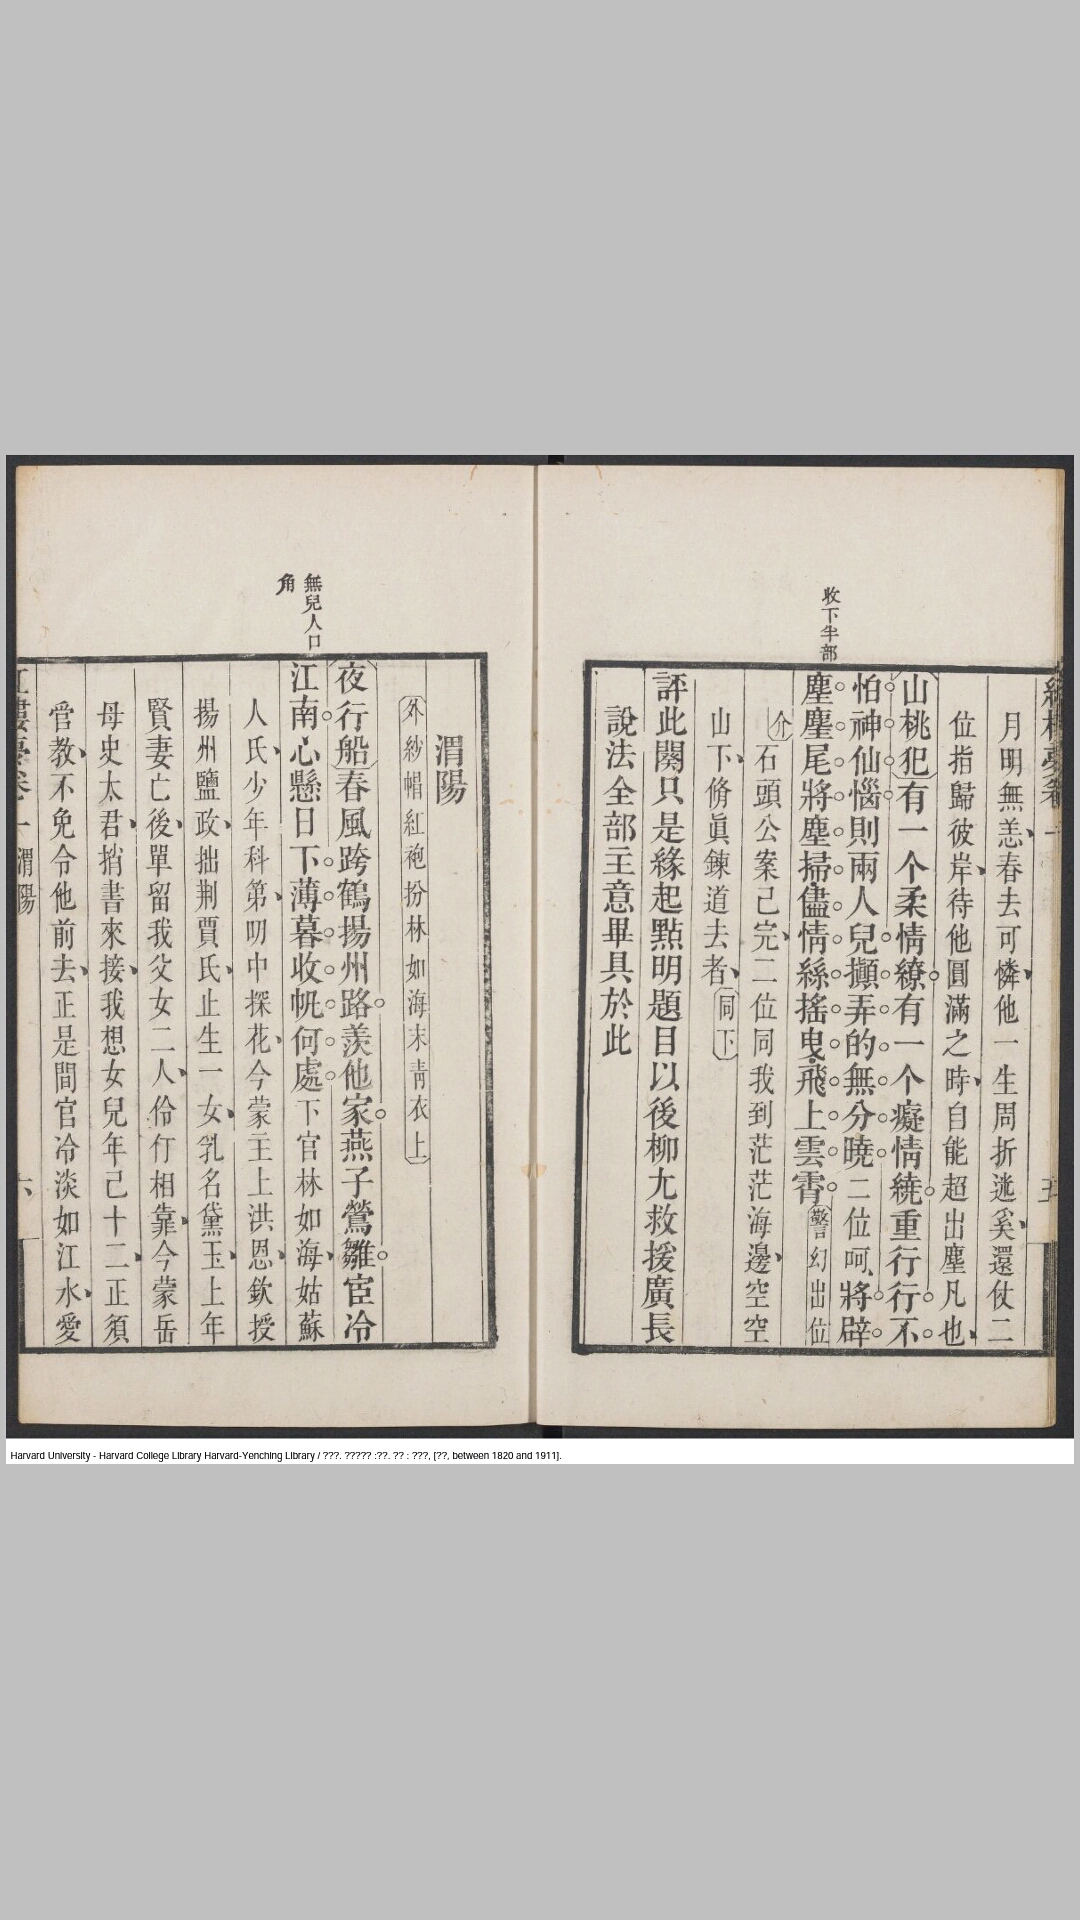 收下半部
月明無恙春去可憐他一生周折逃奚還仗二
位指歸彼岸待他圓滿之時自能超出塵凡也
山桃犯有一个柔情繚有一个癡情繞重行行不
怕神仙惱則兩人兒攧弄的無分曉二位呵將辟
塵麈尾將塵掃儘情絲搖曳飛上雲霄警幻出位
介石頭公案己完二位同我到茫茫海邊空空
山下脩眞鍊道去者同下
評此闋只是緣起點明題目以後柳尢救援廣長
說法全部主意畢具於此
無兒人口
角
渭陽
外紗帽紅袍扮林如海末靑衣上
夜行船春風跨鶴揚州路羨他家燕子鶯雛宦冷
江南心懸日下薄暮收帆何處下官林如海姑蘇
人氏少年科第叨中探花今蒙主上洪恩欽授
揚州鹽政拙荆賈氏止生一女乳名黛玉上年
賢妻亡後單留我父女二人伶仃相靠今蒙岳
母史太君捎書來接我想女兒年己十二正須
管教不免令他前去正是間官冷淡如江水愛
渭陽
六
Harvard University - Harvard College Library Harvard-Yenching Library / ???. ????? :??. ?? : ???, [??, between 1820 and 1911].